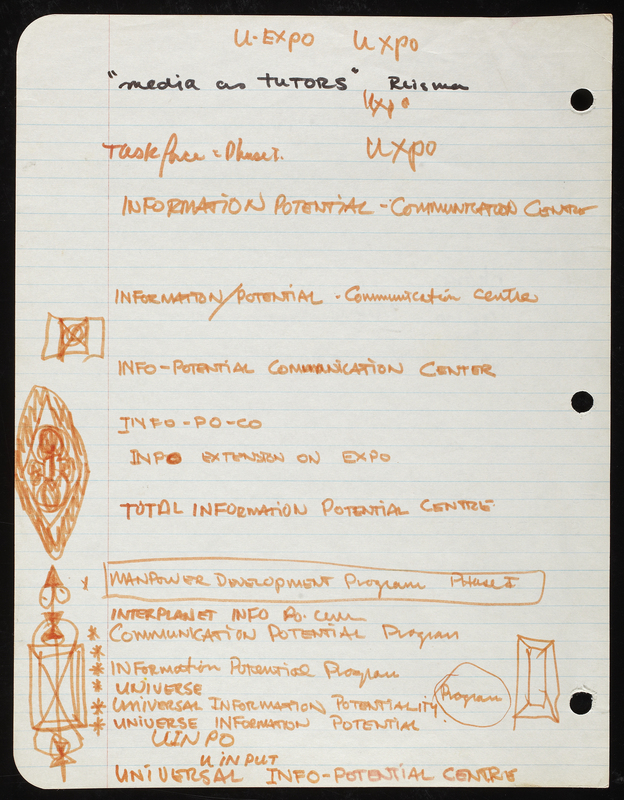 U-EXPO UXPO
"media as TUTORS"
UXPO
Task force = Phase I. UXPO
INFORMATION POTENTIAL - COMMUNICATION CENTRE
INFORMATION/POTENTIAL - Communication centre
INFO-POTENTIAL COMMUNICATION CENTER
INFO-PO-CO
INFO EXTENSION ON EXPO
TOTAL INFORMATION POTENTIAL CENTRE
MANPOWER DEVELOPMENT Program PHASE I
INTERPLANET INFO Po.
* COMMUNICATION POTENTIAL Program
*
* INFORMATION POTENTIAL Program
* UNIVERSE
* UNIVERSAL INFORMATION POTENTIALITY Program
* UNIVERSE INFORMATION POTENTIAL
UINPO
U INPUT
UNIVERSAL INFO-POTENTIAL CENTRE